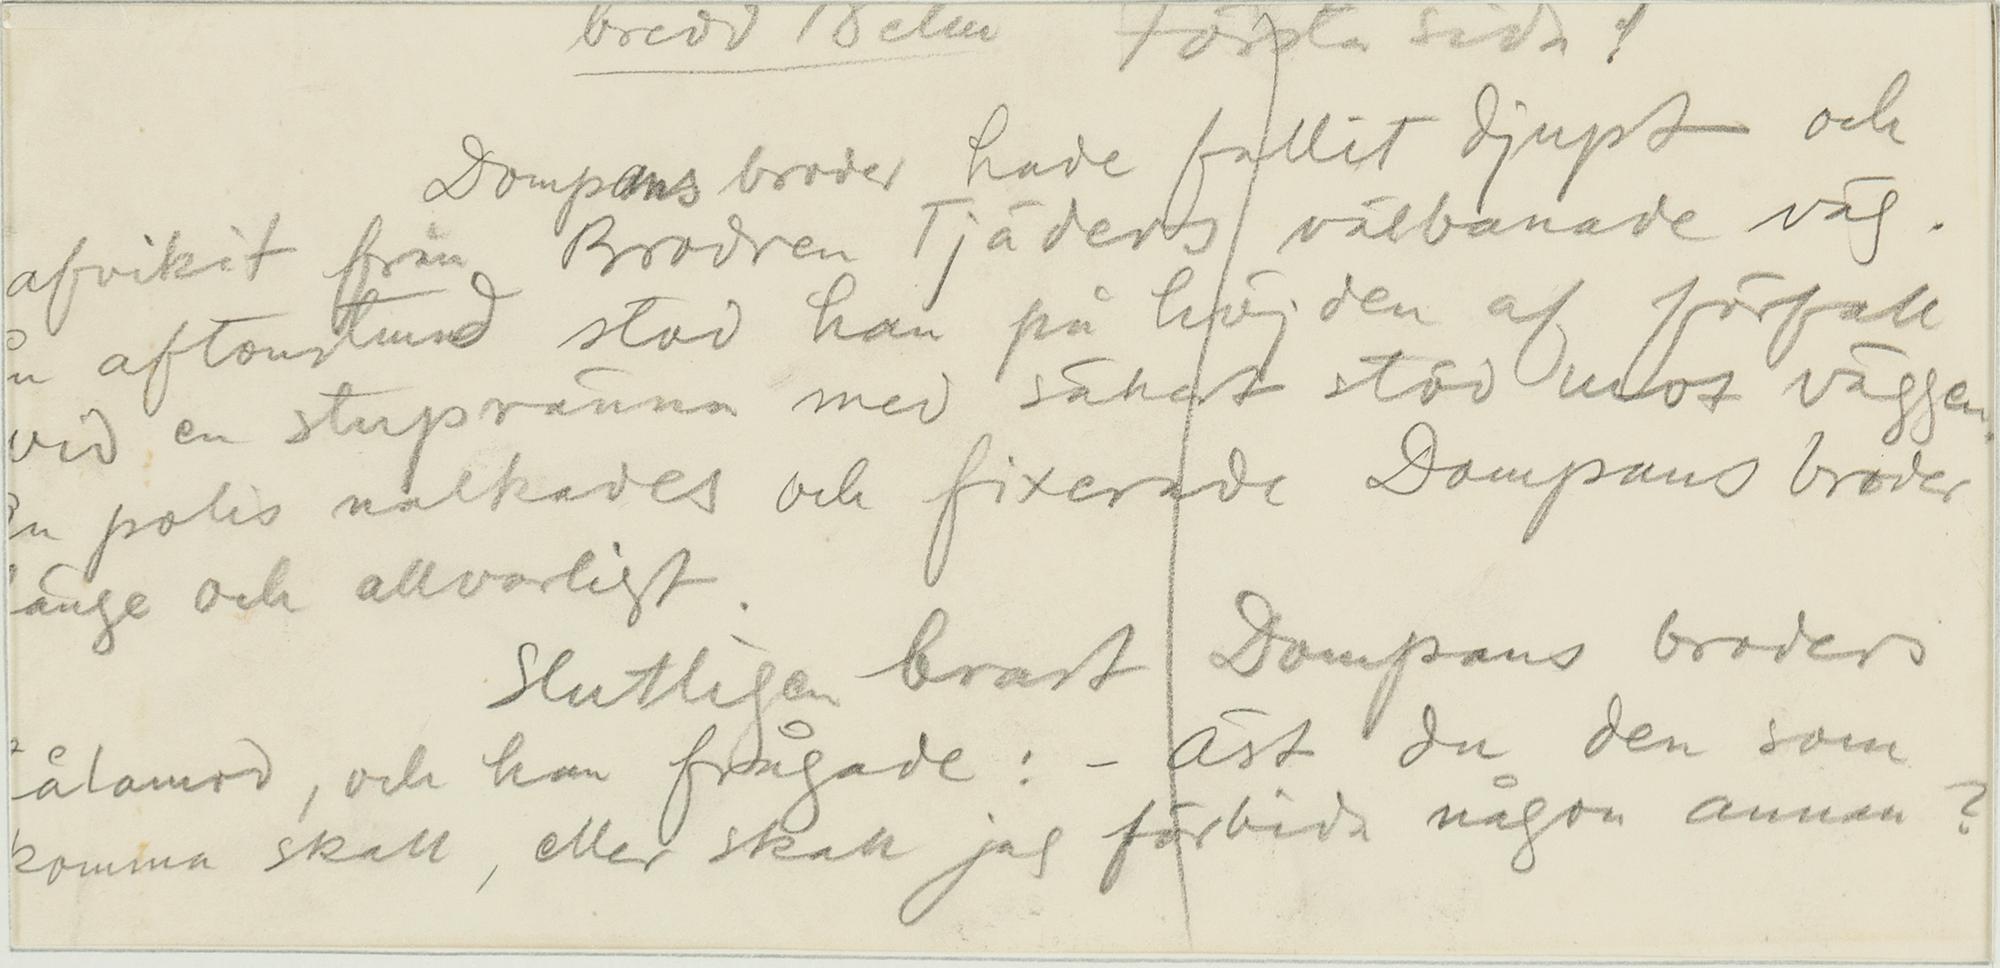 bredd 18 ctm Första sida!
Dompans broder hade fallit djupt och
afvikit från Brodren Tjäders välbanade väg.
En aftonstund stod han på höjden af förfall
vid en stupränna med säkert stöd mot väggen.
En polis nalkades och fixerade Dompans broder
länge och allvarligt.
Slutligen brast Dompans broders
tålamod, och han frågade: – Äst du den som
komma skall, eller skall jag förbida någon annan?